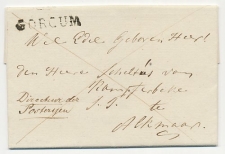 GORCUM
Wel Edel Geboren Heer
den Heere Schelius van
Directeur der
Posterijen
te
Alkmaar